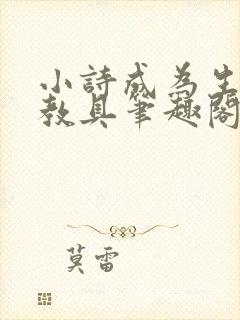 小詩成為生
教具筆趣閣
莫雷